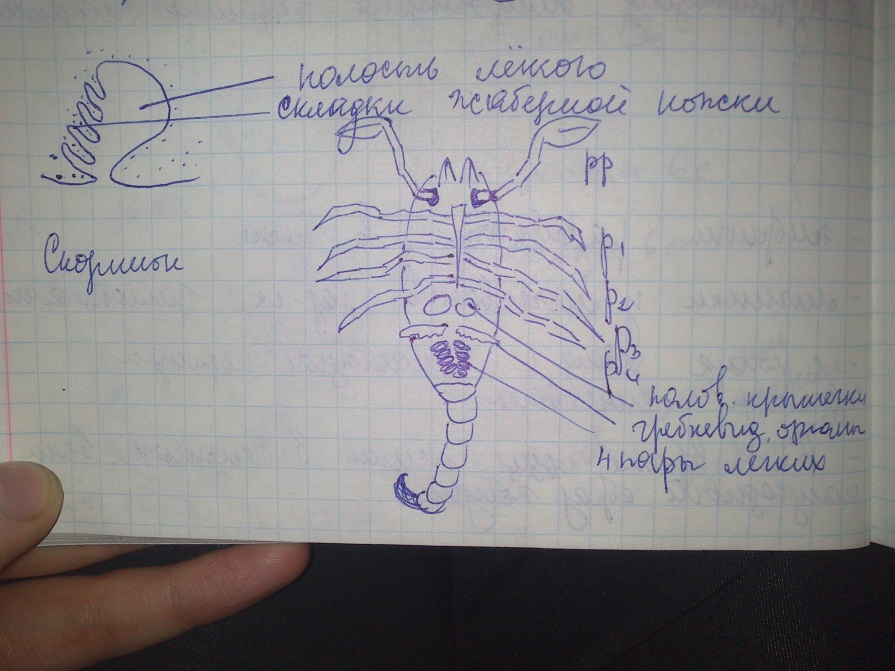 полость лёгкого
складки жаберной ножки
pp
Скорпион
p1
p2
p3
p4
полов. крышечки
гребневид. органы
4 пары легких